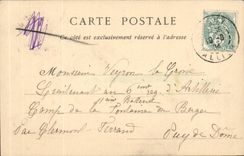 CARTE POSTALE
Ce côté est exclusivement réservé à l'adresse
Monsieur Veyron la Croix
Lieutenant au 6ème reg. d'Artillerie
11ème Batterie
Camp de la Fontaine du Berger
Par Clermont Ferrand
Puy de Dôme